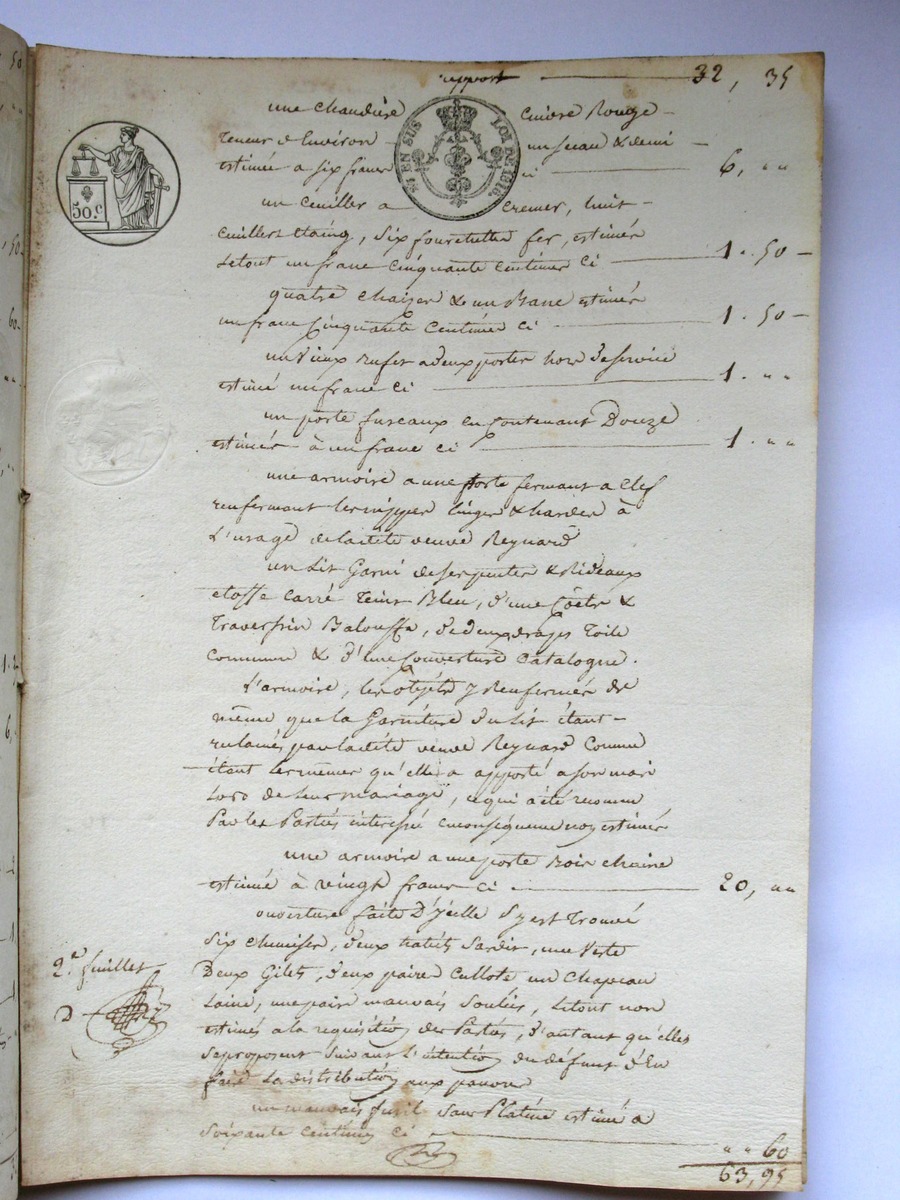 report 32, 35
une chaudière Cuivre Rouge
teneur d'Environ un seau & demi
estimée a six francs ci 6, " "
EN SUS LOI DE 1816.
50.c
un Ceuiller a Ecremer, huit
Cuillers Etaing, six fourchettes fer, estimés
le tout un franc cinquante centimes Ci 1. 50
quatre chaises & un Banc estimés
un franc Cinquante Centimes ci 1. 50
un vieux a deux portes hors de service
estimé un franc Ci 1. " "
un porte fuseaux en Contenant Douze
estimés à un franc ci 1. " "
une armoire a une Porte fermant a Clef
renfermant les nippes linges & hardes à
L'usage de ladite veuve Reynard
un Lit Garni de ses pentes & Rideaux
etoffe Carré Teint Bleu, d'une Coëtre &
Traversin Balouffe, de deux draps Toile
Commune & d'une Couverture Catalogne.
L'armoire, les objets y Renfermés de
même que la Garniture du Lit étant
réclamés par ladite veuve Reynard Comme
étant les mêmes qu'elle a apporté a son mari
Lors de leur mariage, ce qui a été reconnu
Par les Parties interessé en conséquence non estimés
une armoire a une porte Bois chaine
estimée à vingt francs Ci 20, " "
ouverture faite D'ycelle s'y est Trouvé
six chemises, deux habits Sardis, une Veste
Deux Gilets, deux paires Cullote un Chapeau
Laine, une paire mauvais Souliés, le tout non
estimés a la requisition des Parties, d'autant qu'elles
se proposent suivant l'intention du défunt d'En
faire La distribution aux pauvres
2e. feuillet
D
un mauvais fusil Sans Platine estimé a
soixante centimes Ci " " 60
63, 95